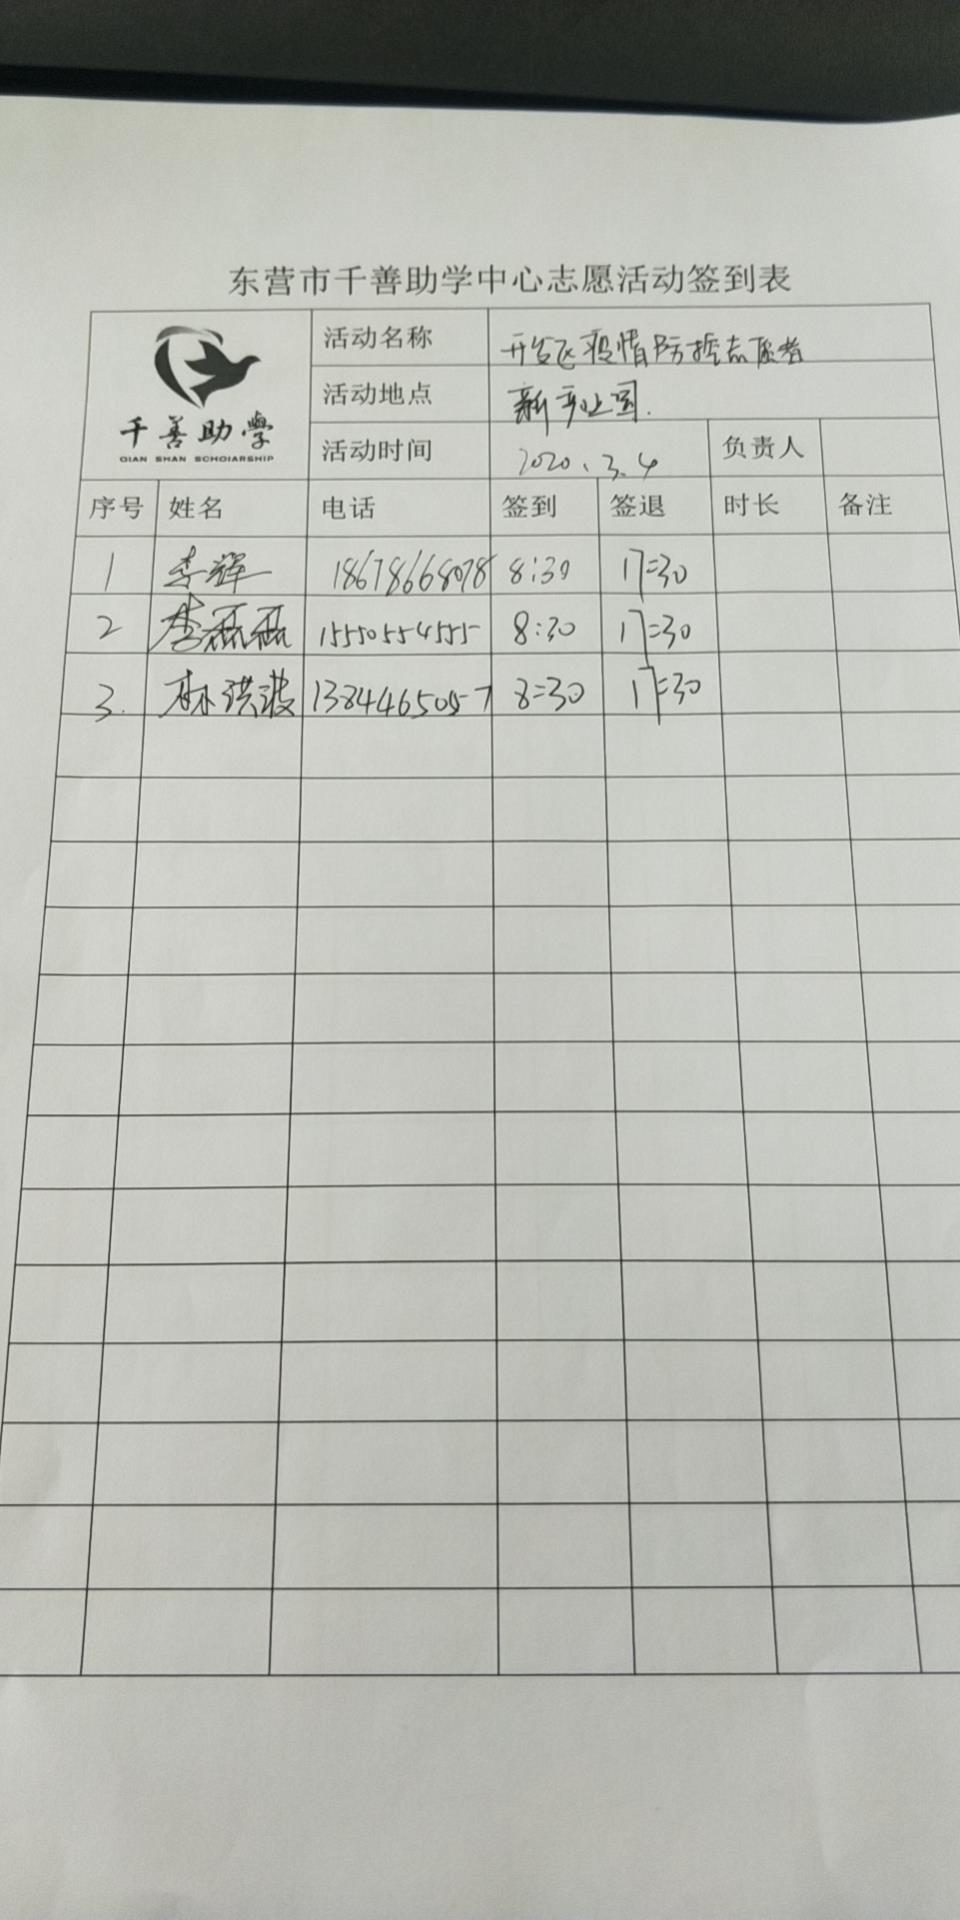 东营市千善助学中心志愿活动签到表
千善助學
QIAN SHAN SCHOIARSHIP
活动名称 开发区疫情防控志愿者
活动地点 新产业园.
活动时间 2020.3.4 负责人
序号 姓名 电话 签到 签退 时长 备注
1 李辉 18678668078 8:30 17:30
2 李磊磊 15550554555 8:30 17:30
3. 林洪波 13844650957 8:30 17:30